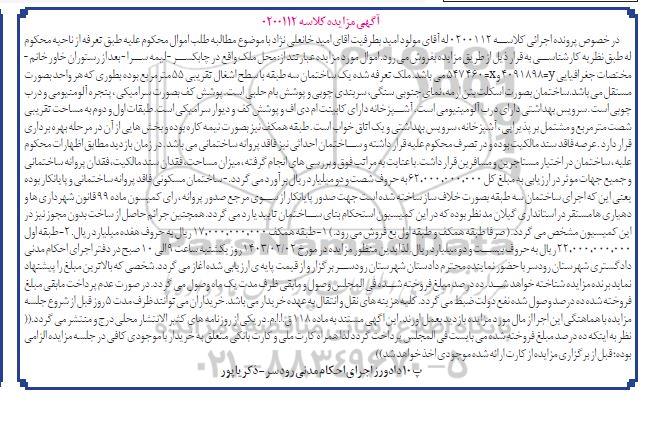 آگهی مزایده کلاسه ۰۲۰۰۱۱۲
در خصوص پرونده اجرائی کلاســه ۰۲۰۰۱۱۲ له آقای مولود امید بطرفیت آقای امید خانعلی نژاد با موضوع مطالبه طلب اموال محکوم علیه طبق تعرفه از ناحیه محکوم
له طبق نظریه کارشناسـی به قرار ذیل از طریق مزایده بفروش می رود. اموال مورد مزایده عبارتند از: محل ملک واقع در چابکسـر - لیمه سـرا - بعد از رستوران خاور خانم -
مختصات جغرافیایی y=۴۰۹۱۸۹۸ و x=۵۴۷۴۶۰ می باشد. ملک تعرفه شده یک ساختمان سه طبقه با سطح اشغال تقریبی ۵۵ متر مربع بوده بطوری که هر واحد بصورت
مستقل می باشد. ساختمان بصورت اسکلت بتن آرمه، نمای جنوبی سنگی، سربندی چوبی و پوشش بام حلبی است. پوشش کف بصورت سرامیکی، پنجره آلومینومی و درب
چوبی است. سرویس بهداشتی دارای درب آلومینیومی است. آشپزخانه دارای کابینت ام دی اف و پوشش کف و دیوار سرامیکی است. طبقات اول و دوم به مساحت تقریبی
شصت متر مربع و مشتمل بر پذیرایی، آشپزخانه، سرویس بهداشتی و یک اتاق خواب است. طبقه همکف نیز بصورت نیمه کاره بوده و بخش هایی از آن در مرحله بهره برداری
قرار دارد. عرصه فاقد سند مالکیت بوده و در تصرف محکوم علیه قرار داشته و ســاختمان احداثی نیز فاقد پروانه ساختمانی می باشد. در زمان بازدید مطابق اظهارات محکوم
علیه، ساختمان در اختیار مستاجرین و مسافرین قرار داشت. با عنایت به مراتب فوق و بررسی های انجام گرفته، میزان مساحت، فقدان سند مالکیت، فقدان پروانه ساختمانی
و جمیع جهات موثر در ارزیابی به مبلغ کل ۶۲,۰۰۰,۰۰۰,۰۰۰ به حروف شصت و دو میلیارد ریال برآورد می گردد. - ساختمان مسکونی فاقد پروانه ساختمانی و پایانکار بوده
یعنی این که اجرای ساختمان سه طبقه بصورت خلاف ساز ساخته شده است جهت صدور پایانکار از سـوی مرجع صدور پروانه، رای کمیسون ماده ۹۹ قانون شهرداری ها و
دهیاری ها مستقر در استانداری گیلان مد نظر بوده که در این کمیسیون استحکام بنای ســاختمان تایید یا رد می گردد. همچنین جرائم حاصل از ساخت بدون مجوز نیز در
این کمیسیون مشخص می گردد. (صرفا طبقه همکف و طبقه اول بع فروش می رود.) ۱- طبقه همکف ۱۷,۰۰۰,۰۰۰,۰۰۰ ریال به حروف هفده میلیارد ریال. ۲- طبقه اول
۲۲,۰۰۰,۰۰۰,۰۰۰ ریال به حروف بیست و دو میلیارد ریال. لذا بدین منظور مزایده در مورخ ۱۴۰۳/۰۲/۰۲ روز یکشنبه ساعت ۹ الی ۱۰ صبح در دفتر اجرای احکام مدنی
دادگستری شهرستان رودسر با حضور نماینده محترم دادستان شهرستان رودســر برگزار و از قیمت پایه ی ارزیابی شده آغاز می گردد. شخصی که بالاترین مبلغ را پیشنهاد
نماید برنده مزایده شناخته خواهد شــد. ده درصد مبلغ فروخته شــده فی المجلس وصول و مابقی ظرف مدت یک ماه وصول می گردد. در صورت عدم پرداخت مابقی مبلغ
فروخته شده ده درصد وصول شده نفع دولت ضبط می گردد. کلیه هزینه های نقل و انتقال به عهده خریدار می باشد. خریداران می توانند ظرف مدت ۵ روز قبل از شروع جلسه
مزایده با هماهنگی این اجرا از مال مورد مزایده بازدید بعمل آورند. این آگهی مستند به ماده ۱۱۸ ق.ا.ا.م. در یکی از روزنامه های کثیر الانتشار محلی درج و منتشر می گردد.((
نظر به اینکه ده درصد مبلغ فروخته شده می بایست فی المجلس پرداخت گردد لذا همراه کارت ملی و کارت بانکی متعلق به خریدار با موجودی کافی در جلسه مزایده الزامی
بوده؛ قبل از برگزاری مزایده از کارت ارائه شده موجودی اخذ خواهد شد))
پ۱۰ دادورز اجرای احکام مدنی رودسر - ذکریاپور
۰۲۱-۸۸۳۴۹۶۷۰-۵